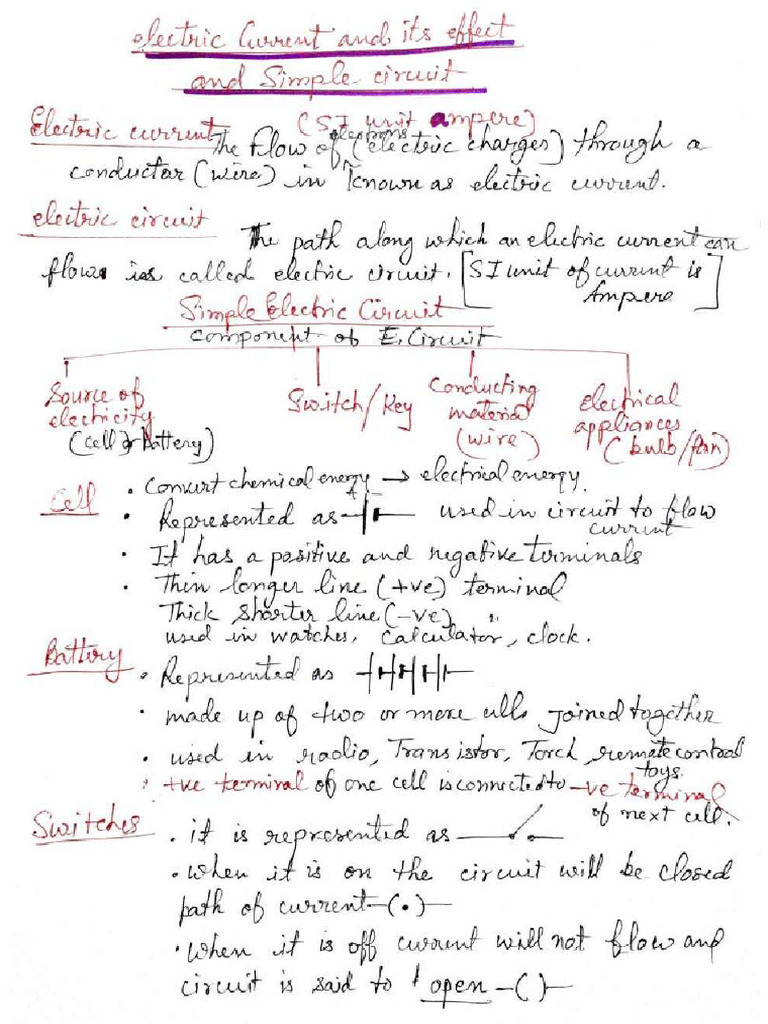 electric Current and its effect
and Simple circuit
Electric current (SI unit ampere)
The flow of electrons (electric charges) through a
conductor (wire) in known as electric current.
electric circuit
The path along which an electric current can
flow is called electric circuit. [SI unit of current is
Ampere]
Simple Electric Circuit
component of E. Circuit
Source of
electricity
(cell or battery)
Switch/Key
Conducting
material
(wire)
electrical
appliances
(bulb/fan)
Cell
• Convert chemical energy → electrical energy.
• Represented as used in circuit to flow
current
• It has a positive and negative terminals
• Thin longer line (+ve) terminal
Thick shorter line (-ve) "
used in watches, calculator, clock.
Battery
• Represented as
• made up of two or more cells joined together
• used in radio, Transistor, Torch, remote control
toys.
• +ve terminal of one cell is connected to -ve terminal
of next cell.
Switches
• it is represented as
• when it is on the circuit will be closed
path of current -(•)-
• when it is off current will not flow and
circuit is said to open -( )-